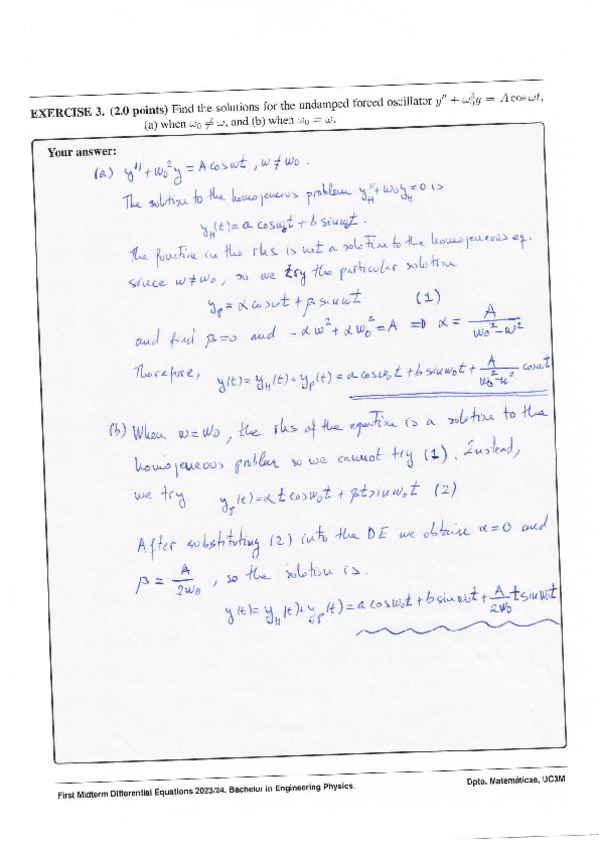 EXERCISE 3. (2.0 points) Find the solutions for the undamped forced oscillator y″ + ω₀²y = A cos ωt,
(a) when ω₀ ≠ ω, and (b) when ω₀ = ω.
Your answer:
(a) y'' + w₀²y = A cos wt , w ≠ w₀ .
The solution to the homogeneous problem y_H'' + w₀y_H = 0 is
y_H(t) = a cos w₀t + b sin w₀t .
The function in the rhs is not a solution to the homogeneous eq.
since w ≠ w₀ , so we try the particular solution
y_p = α cos wt + β sin wt (1)
and find β=0 and -αw² + αw₀² = A ⇒ α = A/(w₀² - w²)
Therefore, y(t) = y_H(t) + y_p(t) = a cos w₀t + b sin w₀t + A/(w₀² - w²) cos wt
(b) When w = w₀ , the rhs of the equation is a solution to the
homogeneous problem so we cannot try (1). Instead,
we try y_p(t) = α t cos w₀t + β t sin w₀t (2)
After substituting (2) into the DE we obtain α=0 and
β = A/2w₀ , so the solution is.
y(t) = y_H(t) + y_p(t) = a cos w₀t + b sin w₀t + A/2w₀ t sin w₀t
First Midterm Differential Equations 2023/24. Bachelor in Engineering Physics.
Dpto. Matemáticas, UC3M